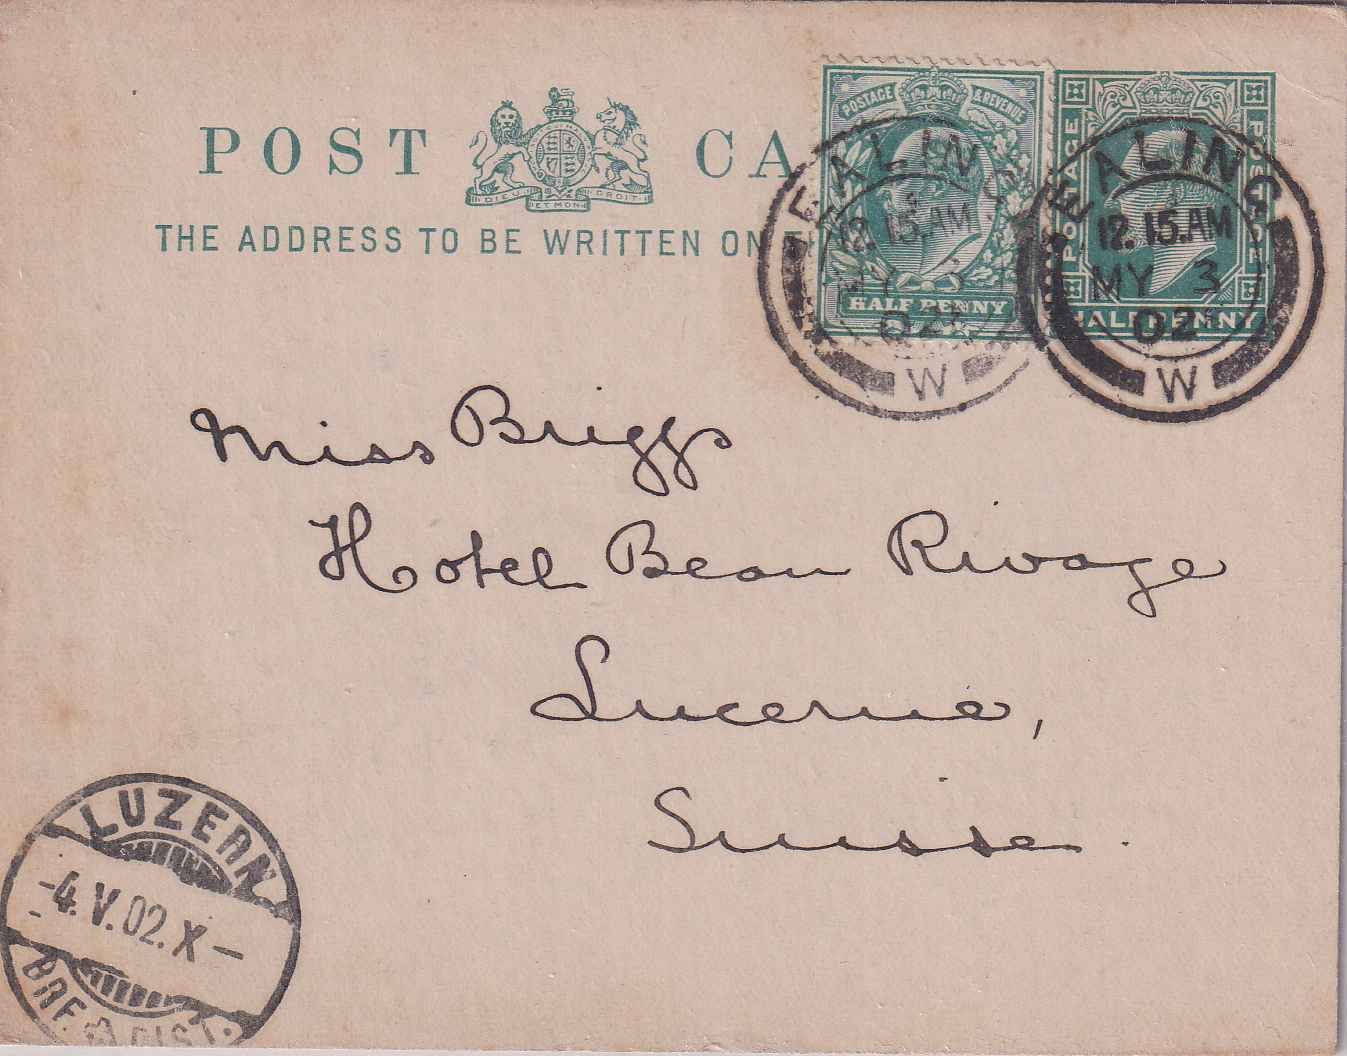 POST CA
DIEU ET MON DROIT
THE ADDRESS TO BE WRITTEN ON
POSTAGE & REVENUE
HALF PENNY
POSTAGE
HALFPENNY
EALING
12.15.AM
MY 3
02
W
EALING
12.15.AM
MY 3
02
W
Miss Briggs
Hotel Beau Rivage
Lucerne,
Suisse.
LUZERN
-4.V.02.X-
BRF. DIST.